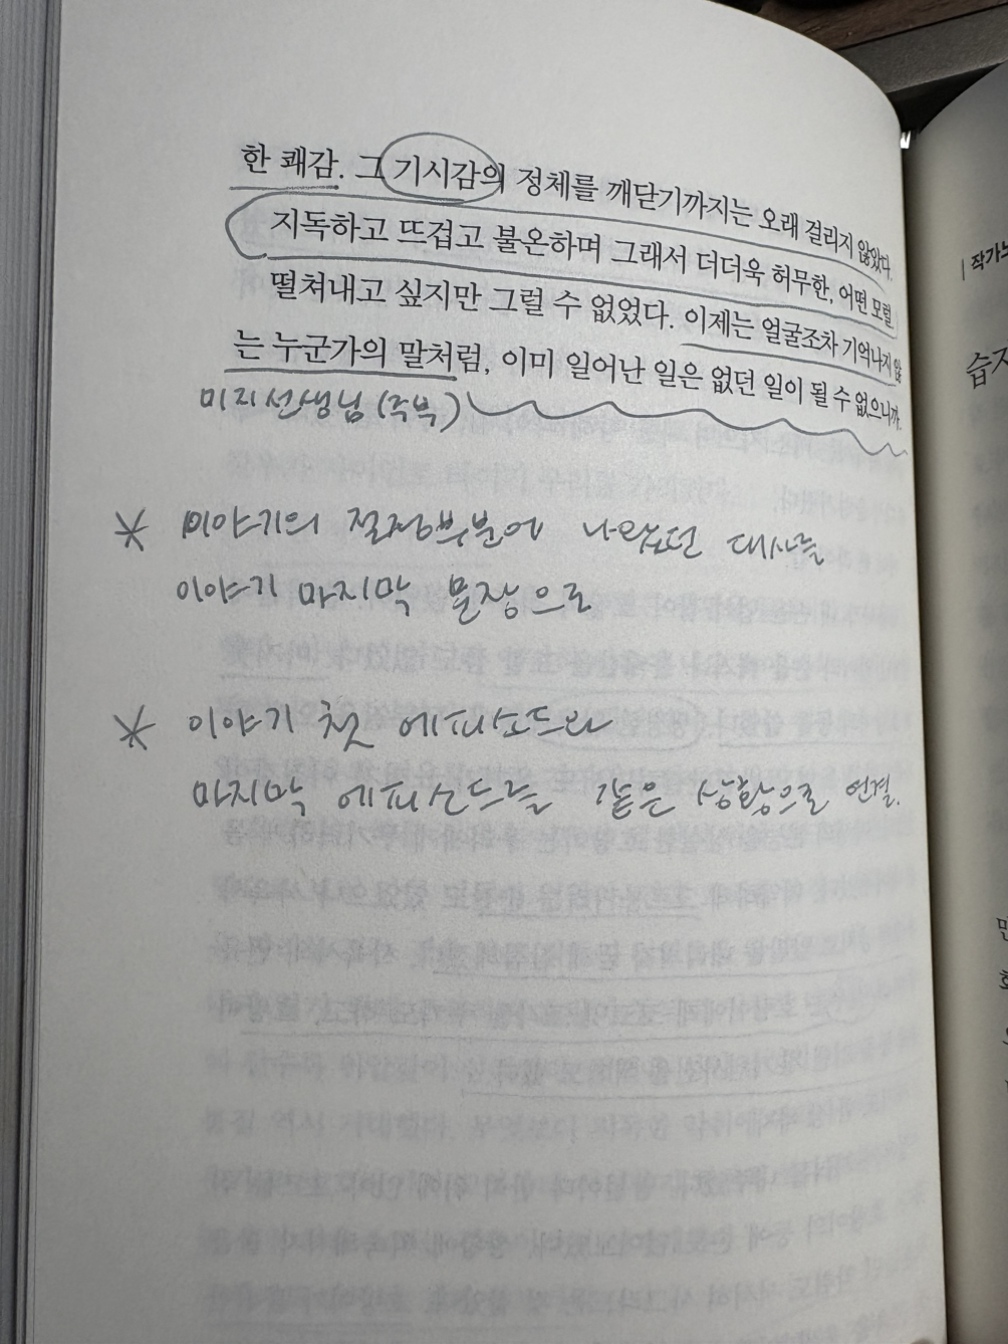 한 쾌감. 그 기시감의 정체를 깨닫기까지는 오래 걸리지 않았다.
지독하고 뜨겁고 불온하며 그래서 더더욱 허무한, 어떤 모럴.
떨쳐내고 싶지만 그럴 수 없었다. 이제는 얼굴조차 기억나지 않
는 누군가의 말처럼, 이미 일어난 일은 없던 일이 될 수 없으니까.
미지선생님(주부)
* 이야기의 절정부분에 나왔던 대사를
이야기 마지막 문장으로
* 이야기 첫 에피소드와
마지막 에피소드를 같은 상황으로 연결.
| 작가노
습지